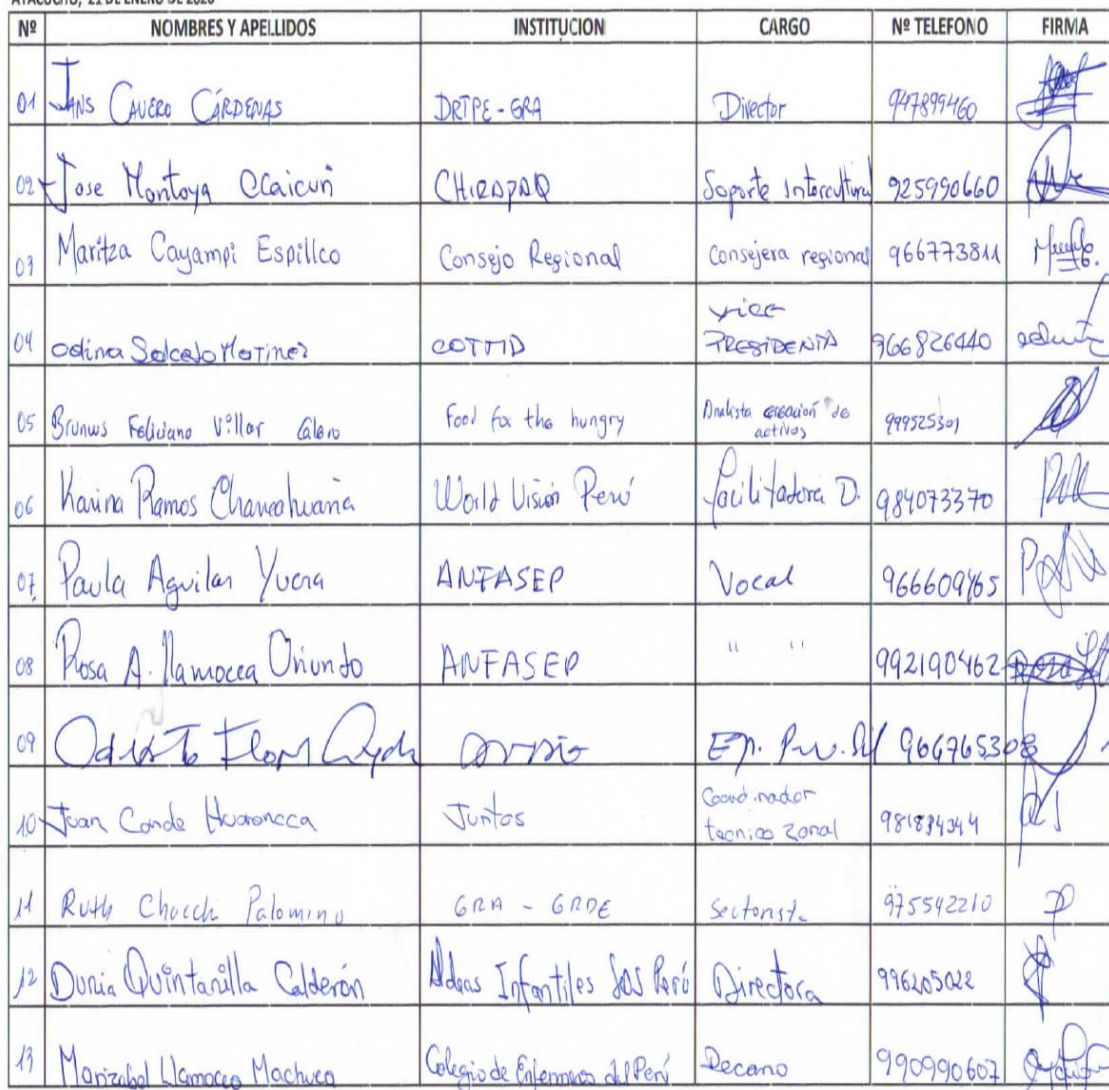 Nº NOMBRES Y APELLIDOS INSTITUCION CARGO Nº TELEFONO FIRMA
01 JANS CAVERO CÁRDENAS DRTPE - GRA Director 947899460
02 Jose Montoya Ccaicuri CHIRAPAQ Soporte Intercultural 925990660
03 Maritza Cayampi Espillco Consejo Regional Consejera regional 966773811
04 Odina Salcedo Martinez COTMD vice PRESIDENTA 966826440
05 Brunws Feliciano Villar Calero Food for the hungry Analista creación de activos 999525301
06 Karina Ramos World Visión Perú facilitadora D. 984073370
07 Paula Aguilar Yucra ANFASEP Vocal 966609465
08 Rosa A. llamocca Oriundo ANFASEP " " 992190462
09 966765308
10 Juan Conde Huaroncca Juntos Coordinador tecnico zonal
11 Ruth Chocch Palomino GRA - GRDE Sectorist 975542210
12 Dunia Quintanilla Calderón Aldeas Infantiles SOS Perú Directora 996205022
13 Marizabel Llamocca Machuca Colegio de Enfermeros del Perú Decano 990990607